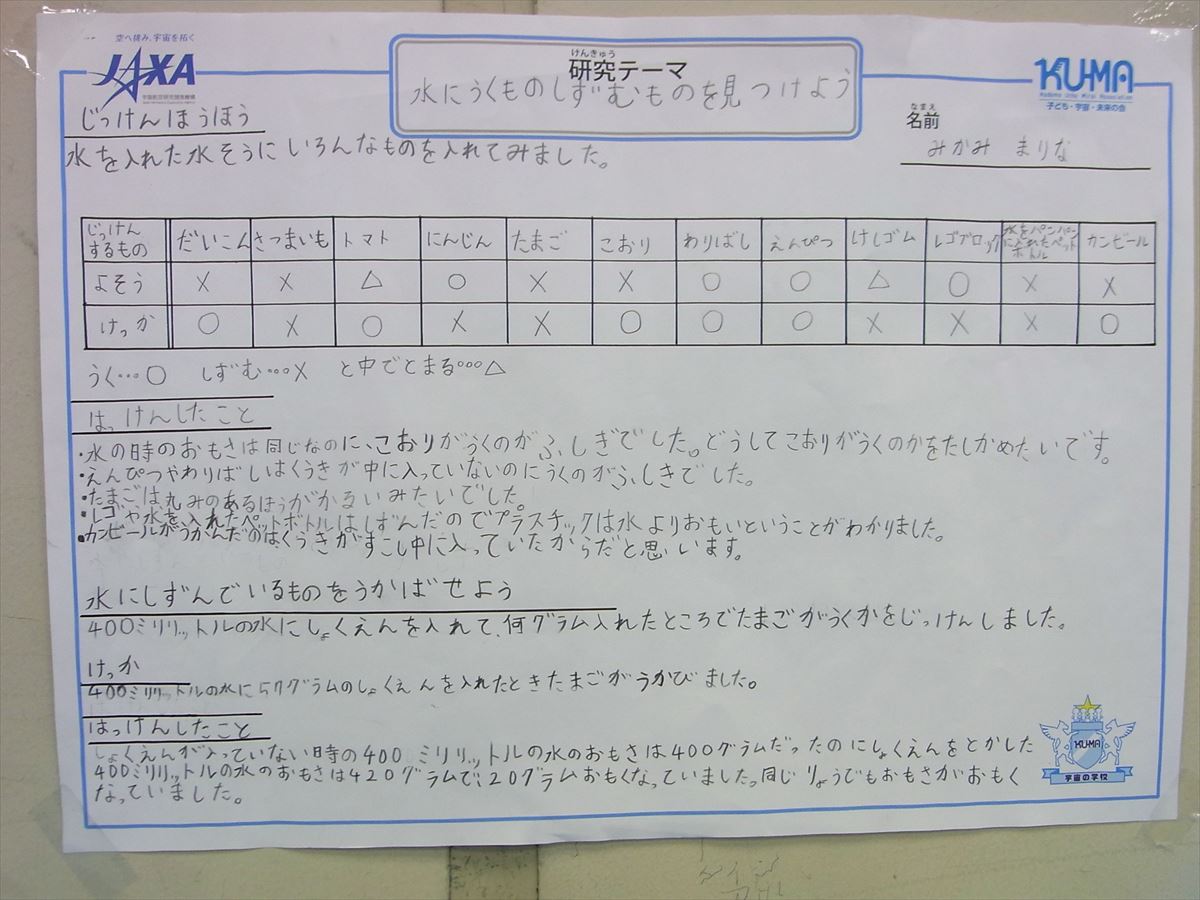 空へ挑み、宇宙を拓く
JAXA
宇宙航空研究開発機構
けんきゅう
研究テーマ
水にうくものしずむものを見つけよう
KU-MA
子ども・宇宙・未来の会
なまえ
名前
みかみ まりな
じっけんほうほう
水を入れた水そうにいろんなものを入れてみました。
じっけんするもの だいこん さつまいも トマト にんじん たまご こおり わりばし えんぴつ けしゴム レゴブロック 水をパンパンに入れたペットボトル カンビール
よそう × × △ ○ × × ○ ○ △ ○ × ×
けっか ○ × ○ × × ○ ○ ○ × × × ○
うく…○ しずむ…× と中でとまる…△
はっけんしたこと
・水の時のおもさは同じなのに、こおりがうくのがふしぎでした。どうしてこおりがうくのかをたしかめたいです。
・えんぴつやわりばしはくうきが中に入っていないのにうくのがふしきでした。
・たまごは丸みのあるほうがかるいみたいでした。
・レゴや水を入れたペットボトルはしずんだのでプラスチックは水よりおもいということがわかりました。
・カンビールがうかんだのはくうきがすこし中に入っていたからだと思います。
水にしずんでいるものをうかばせよう
400ミリリットルの水にしょくえんを入れて、何グラム入れたところでたまごがうくかをじっけんしました。
けっか
400ミリリットルの水に57グラムのしょくえんを入れたときたまごがうかびました。
はっけんしたこと
しょくえんが入っていない時の400ミリリットルの水のおもさは400グラムだったのにしょくえんをとかした
400ミリリットルの水のおもさは420グラムで、20グラムおもくなっていました。同じりょうでもおもさがおもく
なっていました。
KU-MA
宇宙の学校